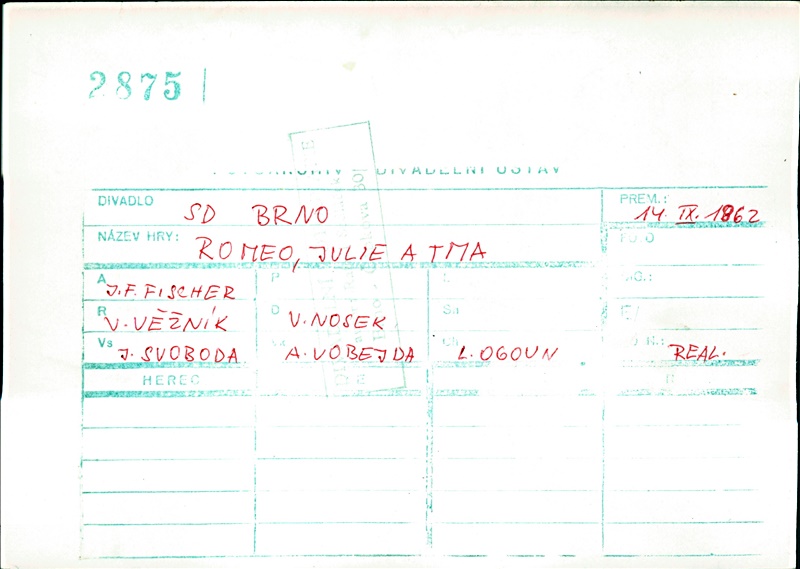 2875
DIVADELNÍ ÚSTAV
DIVADLO SD BRNO PREM.: 14. IX. 1962
NÁZEV HRY: ROMEO, JULIE A TMA
A J. F. FISCHER
R V. VĚŽNÍK D V. NOSEK
Vs J. SVOBODA A. VOBEJDA L. OGOUN REAL.
HEREC